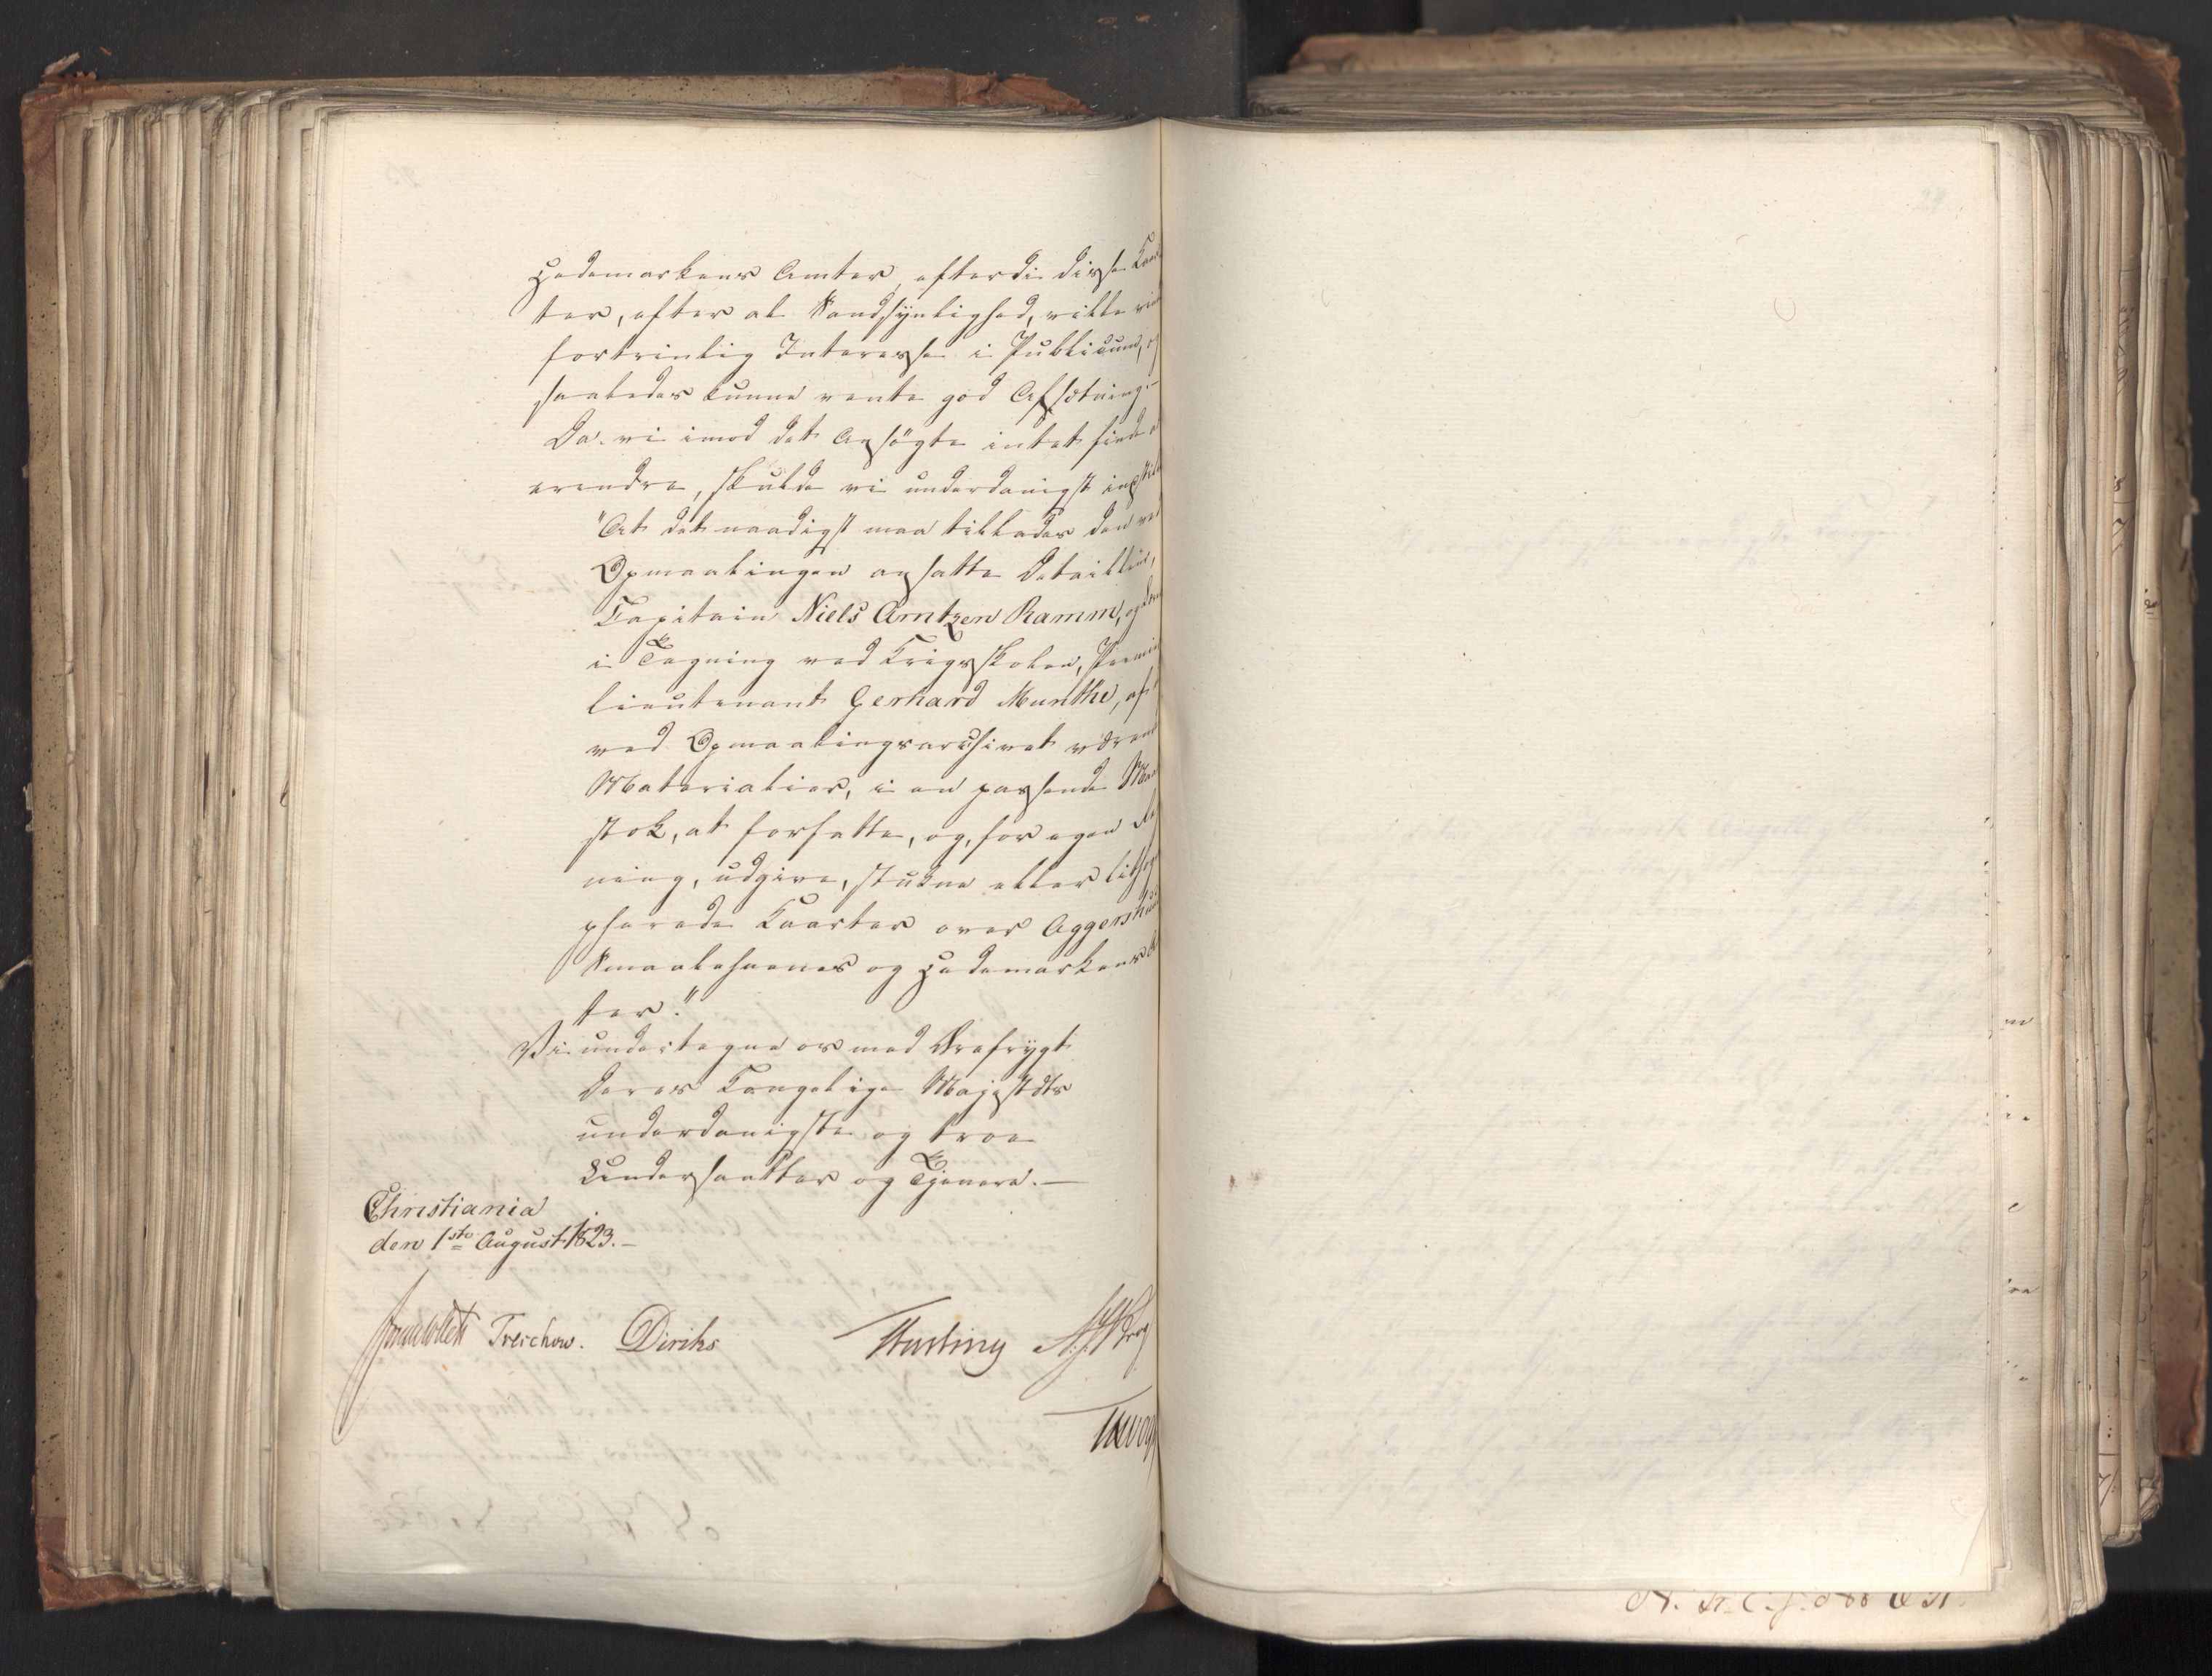 Hedemarkens Amter, efterdi disse Kaar
ter, efter al Sandsynlighed, ville
fortrinlig Interesse i Publicum, og
saaledes kunne vente god Afsætning.—
Da vi imod det Ansögte intet finde at
erindre, skulde vi underdanigst
"At det naadigst maa tillades den ved
Opmaalingen ansatte Detailleur,
Capitain Niels Arntzen Ramm, og
i Tegning ved Krigsskolen, Premier
lieutenant Gerhard Munthe, af
ved Opmaalingsarchivet værende
Materialier, i en passende Maale
stok, at forfatte, og, for egen Reg
ning, udgive, stukne eller lithogra
pherede Kaarter over Aggershuus
Smaalehnenes og Hedemarkens Am
ter."
Vi undertegne os med Ærefrygt
Deres Kongelige Majestæts
underdanigste og troe
Undersaatter og Tjenere.—
Christiania
den 1ste August 1823.—
Treschow. Diriks